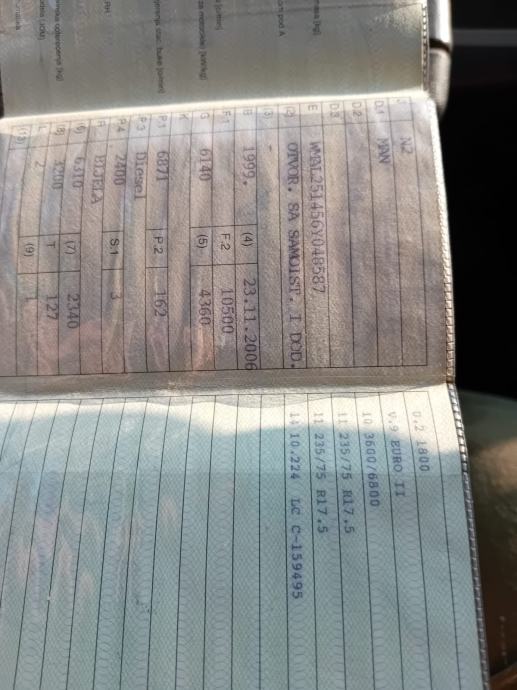 J N2
D.1 MAN
D.2
D.3
E WMAL251456Y048587
(2) OTVOR. SA SAMOIST. I DOD.
(3) -
B 1999. (4) 23.11.2006
F.1 F.2 10500
G 6140 (5) 4360
K
P.1 6871 P.2 162
P.3 Diesel
P.4 2400 S.1 3
R BIJELA
(6) 6310 (7) 2340
(8) 3200 T 127
L 2 (9)
(13)
O.2 1800
V.9 EURO II
10 3600/6800
11 235/75 R17.5
11 235/75 R17.5
14 10.224 LC C-159495